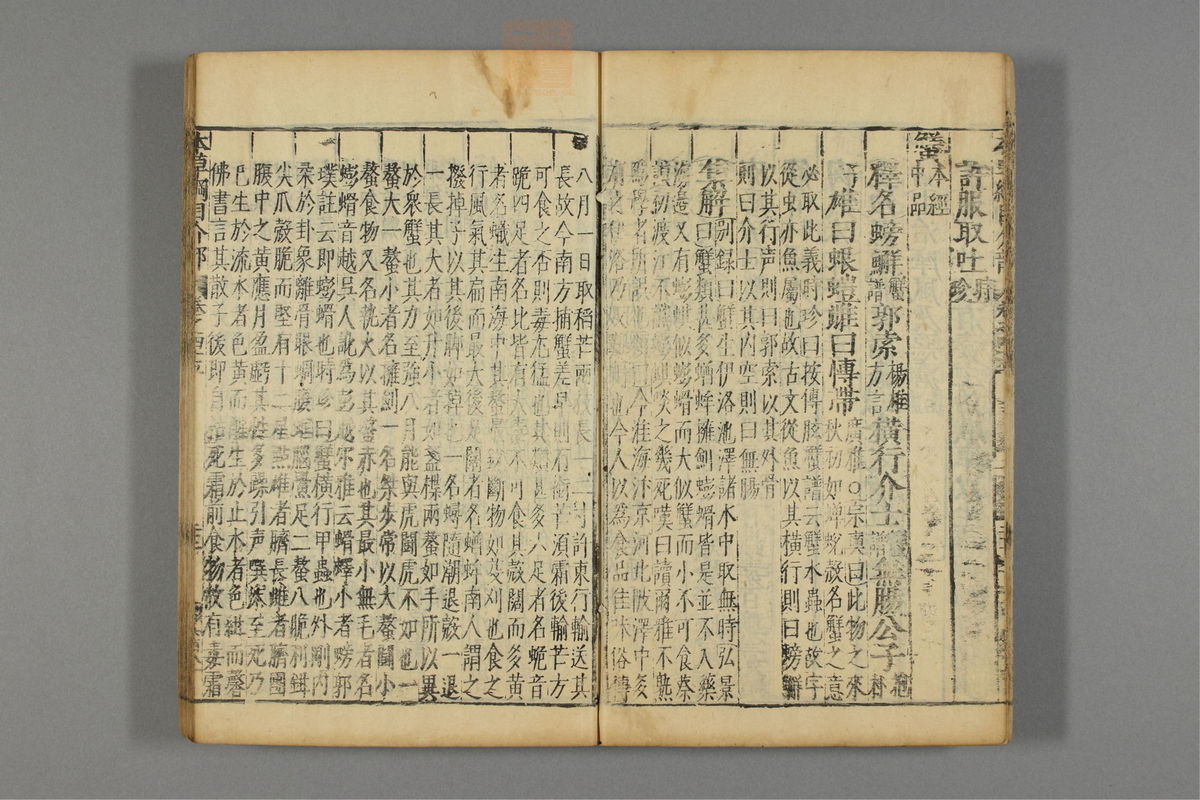 許服取吐
蟹 本經中品
釋名螃蟹 蟹譜 郭索 揚雄方言 橫行介士 蟹譜 無腸公子 抱朴
子 雄曰蜋螘雌曰博帶 廣雅○宗奭曰此物之來
秋初如蟬蛻故名蟹之意
必取此義時珍曰按傅肱蟹譜云蟹水蟲也故字
從虫亦魚屬也故古文從魚以其橫行則曰螃蠏
以其行声則曰郭索以其外骨
則曰介士以其內空則曰無腸
集解 別錄曰蟹生伊洛池澤諸水中取無時弘景
曰蟹類甚多蝤蛑擁劍蟛螖皆是並不入藥
海邊又有蟛蜞似蟛螖而大似蟹而小不可食蔡
謨初渡江不識蟛蜞啖之幾死嘆曰讀爾雅不熟
為學者所誤頌曰今淮海汴京河北陂澤中多
有之伊洛乃反難得也今人以為食品佳味俗傳
八月一日取稻芒兩枚長一二寸許東行輸送其
長故今南方捕蟹差早則有銜芒須霜後輸芒方
可食之否則毒尤猛也其類甚多六足者名蛫音
跪四足者名比皆有大毒不可食其殼闊而多黃
者名蠘生南海中其螯最銳斷物如芟刈也食之
行風氣其扁而最大後足闊者名蝤蛑南人謂之
撥棹子以其後脚如棹也一名蟳隨潮退殼一退
一長其大者如升小者如盞楪兩螯如手所以異
於衆蟹也其力至強八月能與虎鬪虎不如也一
螯大一螯小者名擁劍一名桀步常以大螯鬪小
螯食物又名執火以其螯赤也其最小無毛者名
蟛螖音越吳人訛為彭越爾雅云螖蠌小者蟧郭
璞註云即蟛螖也時珍曰蟹橫行甲蟲也外剛內
柔於卦象離骨眼蜩腹䖦腦鱟足二螯八跪利鉗
尖爪殼脆而堅有十二星點雄者臍長雌者臍團
腹中之黃應月盈虧其性多躁引声噀沫至死乃
已生於流水者色黃而腥生於止水者色紺而馨
佛書言其散子後即自枯死霜前食物故有毒霜